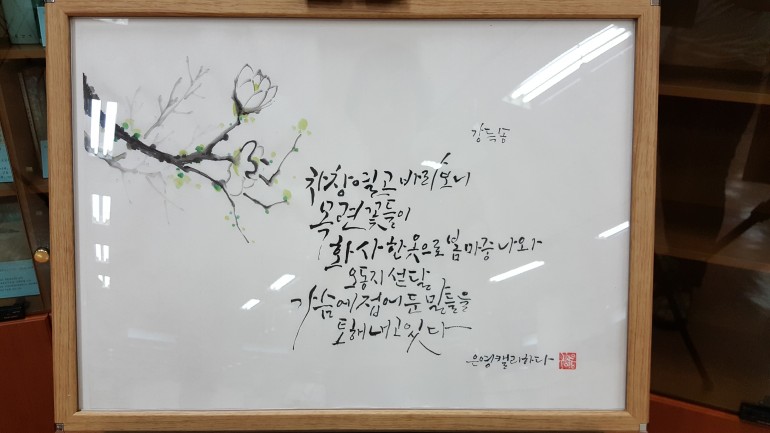 강득송
차창 열고 바라보니
목련꽃들이
화사한 옷으로 봄마중 나와
오동지 섣달
가슴에 접어둔 말들을
토해내고 있다
은영캘리하다